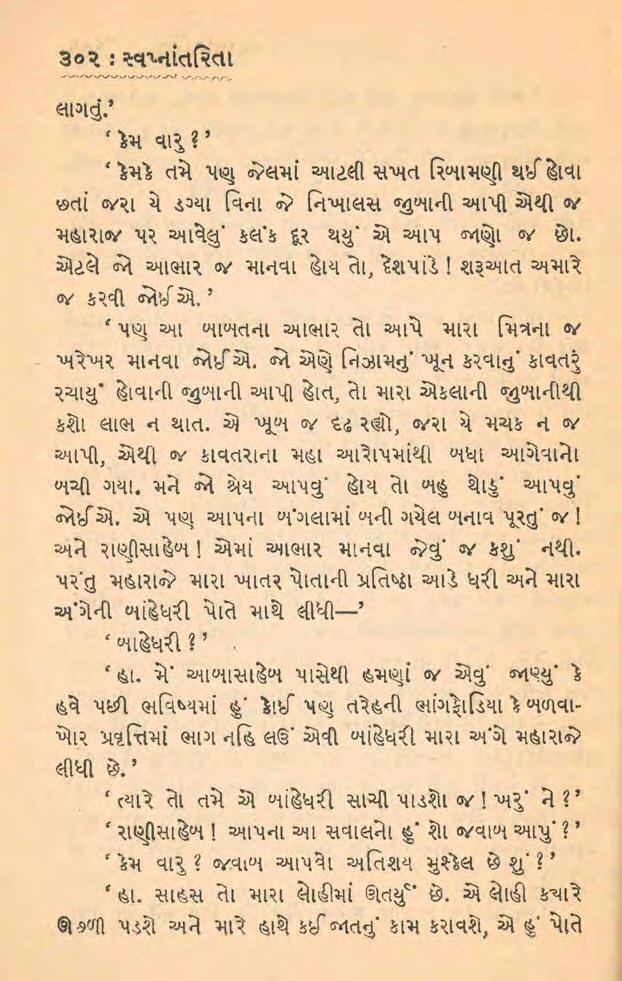 ૩૦૨ : સ્વપ્નાંતરિતા
લાગતું.’
‘ કેમ વારુ ? ’
‘ કેમકે તમે પણ જેલમાં આટલી સખત રિબામણી થઈ હોવા
છતાં જરા યે ડગ્યા વિના જે નિખાલસ જુબાની આપી એથી જ
મહારાજ પર આવેલું કલંક દૂર થયું એ આપ જાણો જ છો.
એટલે જો આભાર જ માનવા હોય તો, દેશપાંડે ! શરૂઆત અમારે
જ કરવી જોઈએ. ’
‘ પણ આ બાબતના આભાર તો આપે મારા મિત્રના જ
ખરેખર માનવા જોઈએ. જો એણે નિઝામનું ખૂન કરવાનું કાવતરું
રચાયું હોવાની જુબાની આપી હોત, તો મારા એકલાની જુબાનીથી
કશો લાભ ન થાત. એ ખૂબ જ દૃઢ રહ્યો, જરા યે મચક ન જ
આપી, એથી જ કાવતરાના મહા આરોપમાંથી બધા આગેવાનો
બચી ગયા. મને જો શ્રેય આપવું હોય તો બહુ થોડું આપવું
જોઈએ. એ પણ આપના બંગલામાં બની ગયેલ બનાવ પૂરતું જ !
અને રાણીસાહેબ ! એમાં આભાર માનવા જેવું જ કશું નથી.
પરંતુ મહારાજે મારા ખાતર પોતાની પ્રતિષ્ઠા આડે ધરી અને મારા
અંગેની બાંહેધરી પોતે માથે લીધી—’
‘ બાહેધરી ? ’
‘ હા. મેં આબાસાહેબ પાસેથી હમણાં જ એવું જાણ્યું કે
હવે પછી ભવિષ્યમાં હું કોઈ પણ તરેહની ભાંગફોડિયા કે બળવા-
ખોર પ્રવૃત્તિમાં ભાગ નહિ લઉં એવી બાંહેધરી મારા અંગે મહારાજે
લીધી છે. ’
‘ ત્યારે તો તમે એ બાંહેધરી સાચી પાડશો જ ! ખરું ને ? ’
‘ રાણીસાહેબ ! આપના આ સવાલનો હું શો જવાબ આપું ? ’
‘ કેમ વારુ ? જવાબ આપવો અતિશય મુશ્કેલ છે શું ? ’
‘ હા. સાહસ તો મારા લોહીમાં ઊતર્યું છે. એ લોહી ક્યારે
ઊછળી પડશે અને મારે હાથે કઈ જાતનું કામ કરાવશે, એ હું પોતે